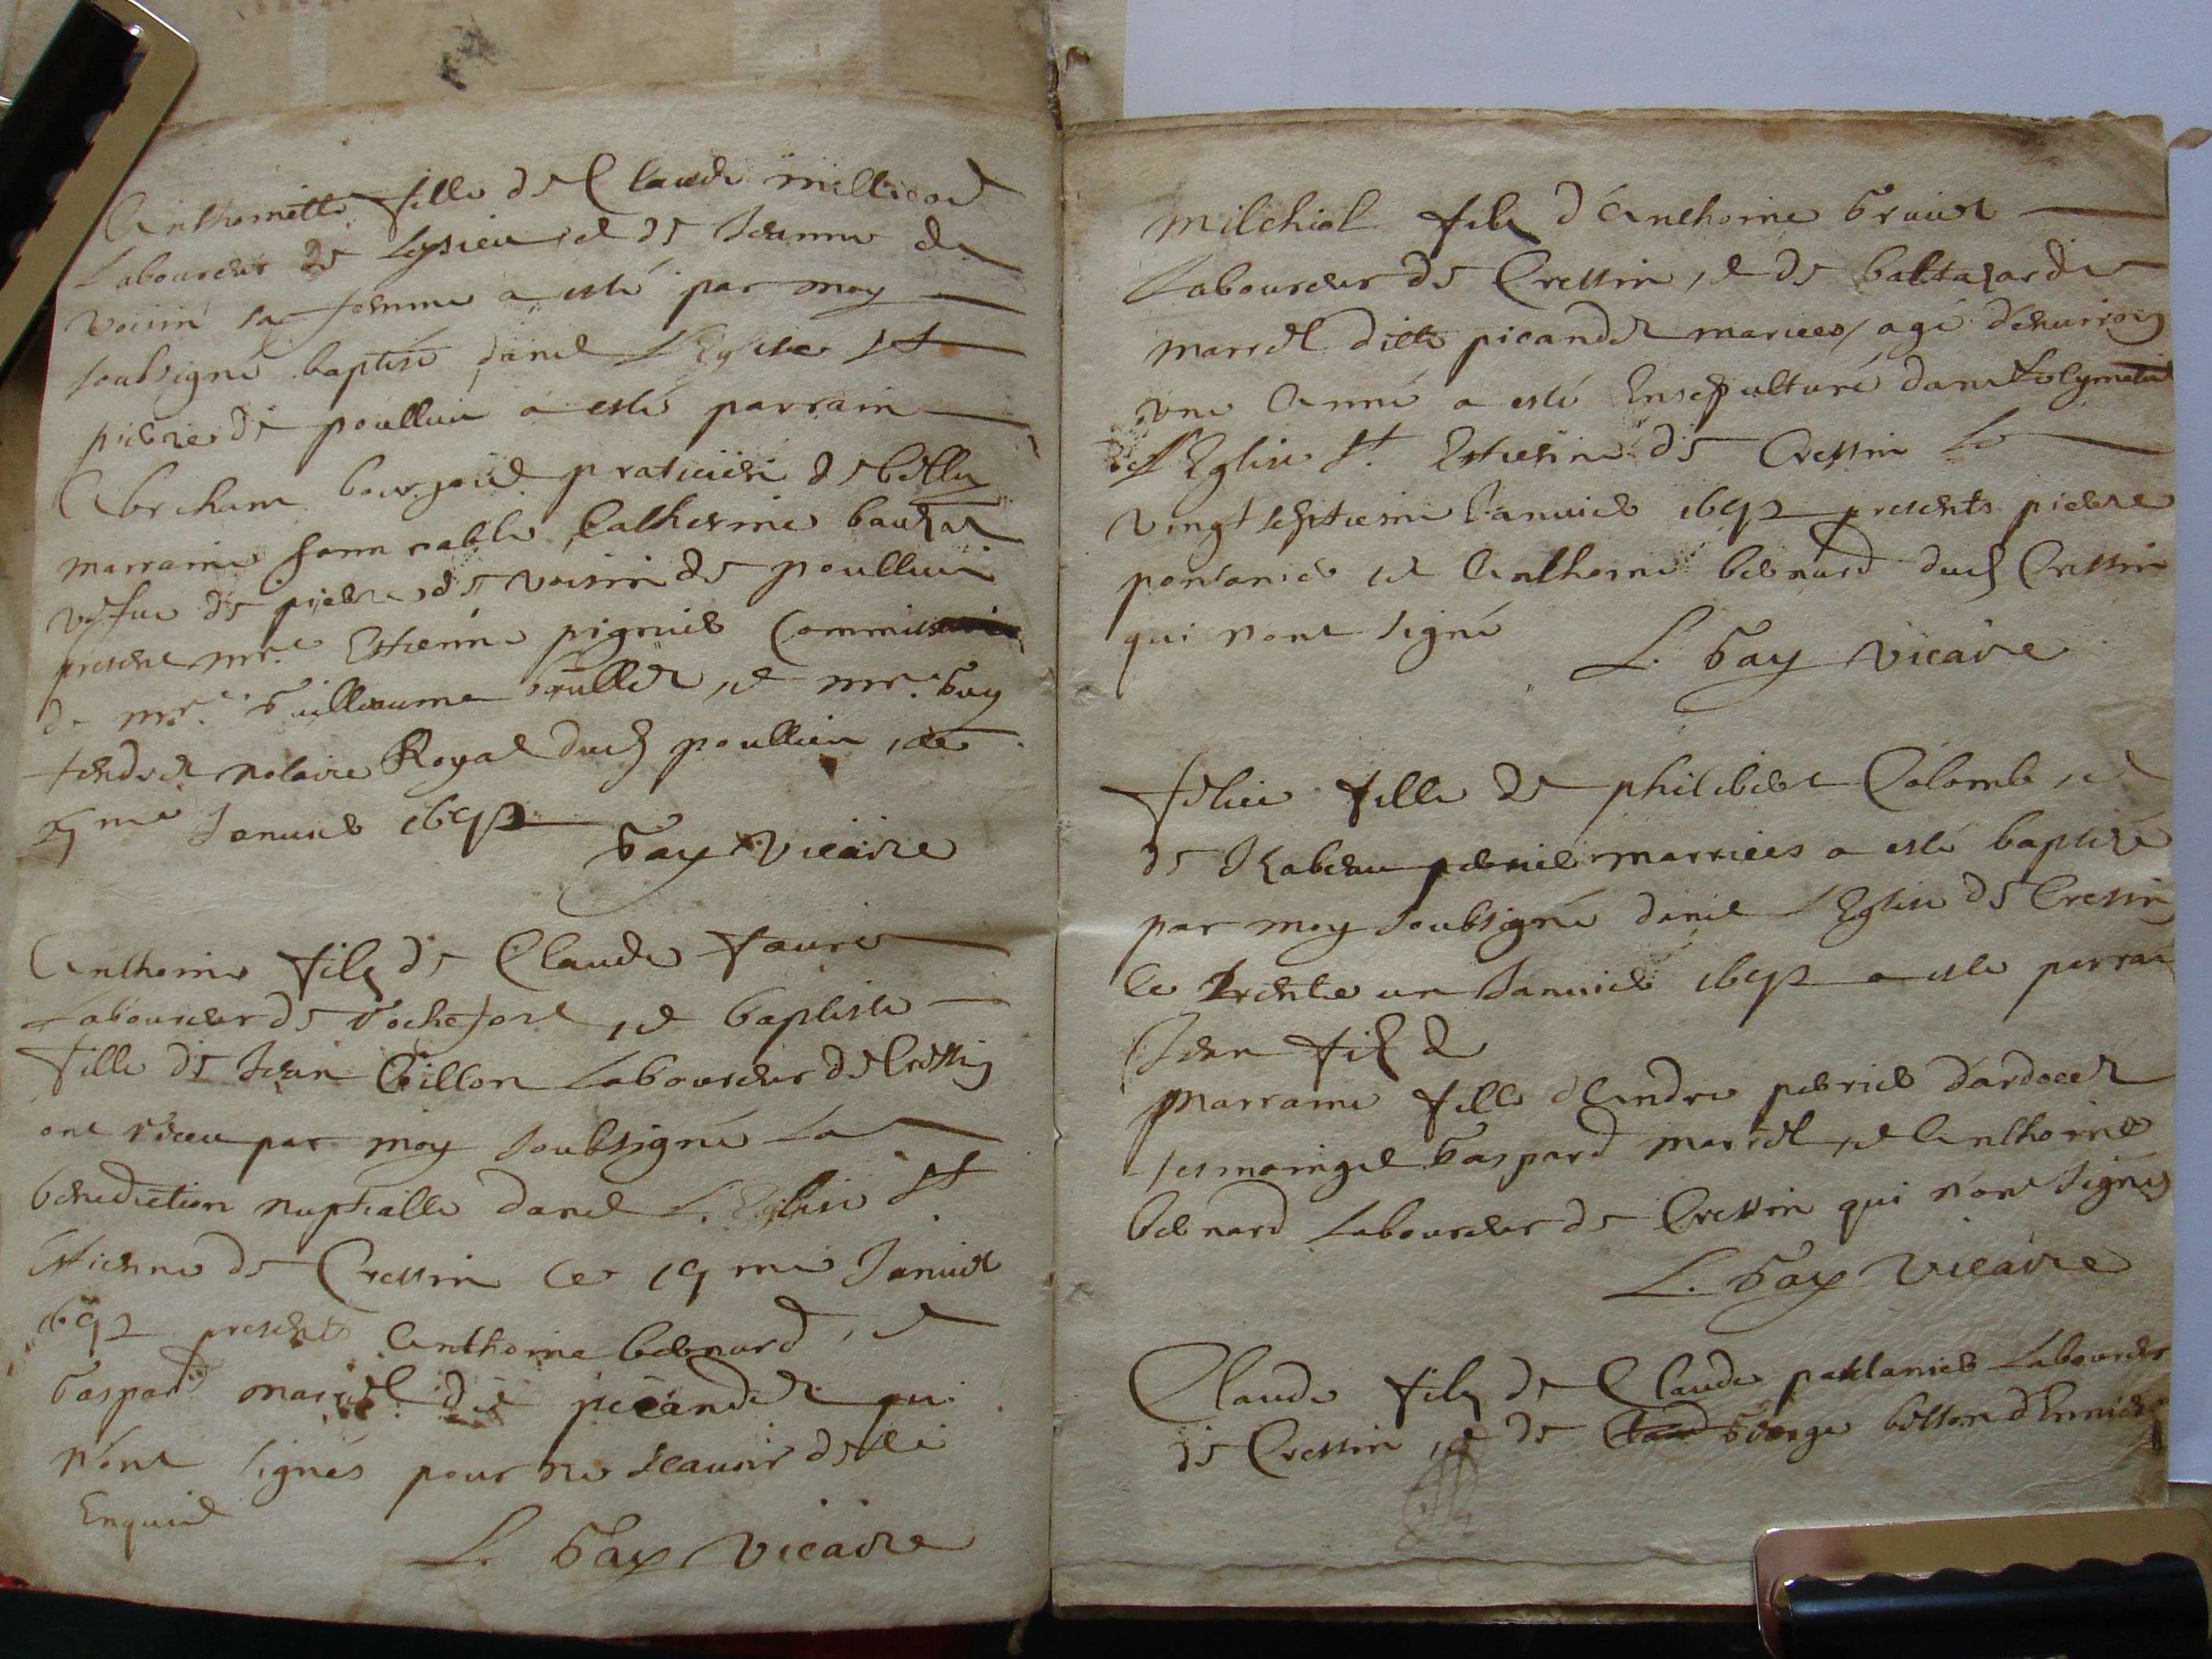 Anthomette fille de Claude millieod
Laboureur de Leysieu, et de Jeanne de
voisin sa femme a esté par moy
soubsigné baptisé dans L'Eglise St
pierre de poullieu a esté parrain
Abreham bourgeois praticien de billy
marraine honnorable Catherine
vefve de pierre de voisin de poullieu
present mre. Estienne pignier
de mre. Guillaume brullet, et mr. Guy
tendret notaire Royal dud poullieu, ce
me Janvier 1692
Gay vicaire
Anthoine filz de Claude faure
Laboureur de rochefort, et baptiste
fille de Jean Billon Laboureur de Cressin
ont receu par moy soubsigné La
benediction nuptialle dans L'Eglise St
Estienne de Cressin ce 19 me Janvier
1692 presents Anthoine bernard, et
Gaspard marrel dit picandet qui
n'ont signés pour ne scavoir de ce
Enquis
L. Gay vicaire
milchiol filz d'Anthoine Gruiet
Laboureur de Cressin, et de baltazarde
marrel ditte picandet mariees, agé d'environ
une Anné a esté Ensepulturé dans
de L'Eglise St. Estienne de Cressin Le
vingt septiesme Janvier 1692 presents pierre
pontanier et Anthoine bernard dud Cressin
qui n'ont signé
L. Gay vicaire
felice fille de philibert Colomb, et
de Izabeau perrier marriees a esté baptizé
par moy soubsigné dans L'Eglise de Cressin
ce trente un Janvier 1692 a esté parrain
Jean filz d
marraine fille d'Andre perrier d'ardocet
tesmoingt Gaspard marrel, et Anthoine
bernard Laboureur de Cressin qui n'ont signés
L. Gay vicaire
Claude filz de Claude pantanier Laboureur
de Cressin, et de George billon